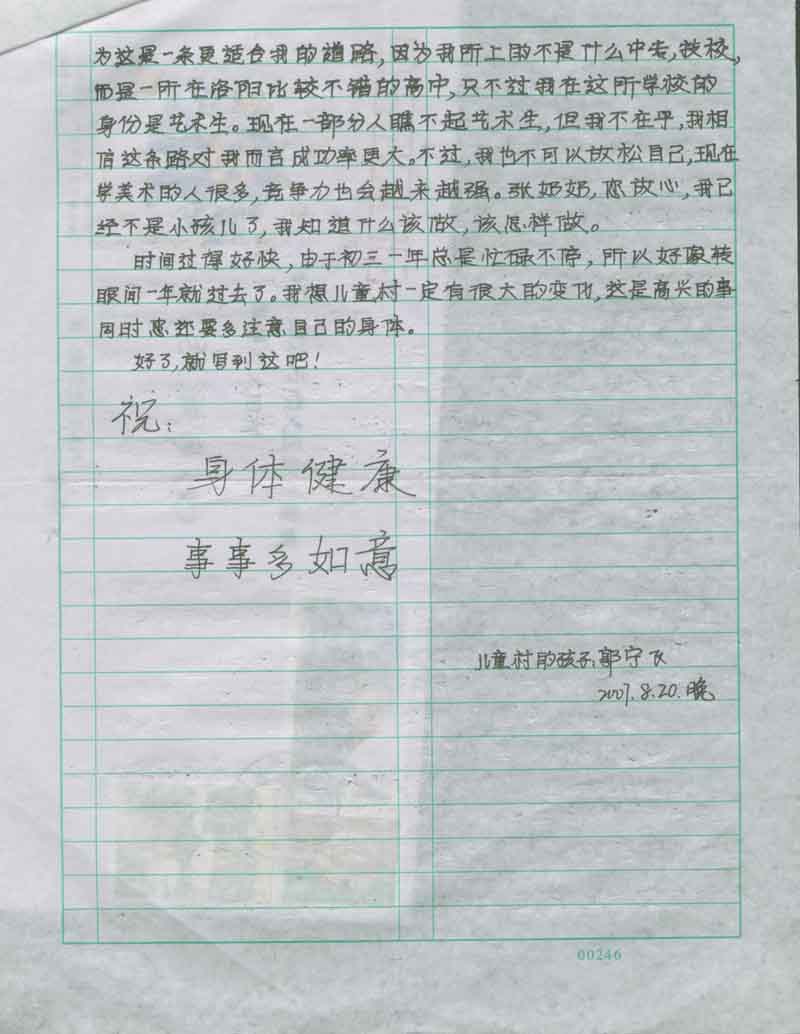 为这是一条更适合我的道路,因为我所上的不是什么中专,技校,
而是一所在洛阳比较不错的高中,只不过我在这所学校的
身份是艺术生。现在一部分人瞧不起艺术生,但我不在乎,我相
信这条路对我而言成功率更大。不过,我也不可以放松自己,现在
学美术的人很多,竞争力也会越来越强。张奶奶,您放心,我已
经不是小孩儿了,我知道什么该做,该怎样做。
时间过得好快,由于初三一年总是忙碌不停,所以好像转
眼间一年就过去了。我想儿童村一定有很大的变化,这是高兴的事
同时您还要多注意自己的身体。
好了,就写到这吧!
祝:
身体健康
事事多如意
儿童村的孩子:郭宁飞
2007.8.20.晚
00246